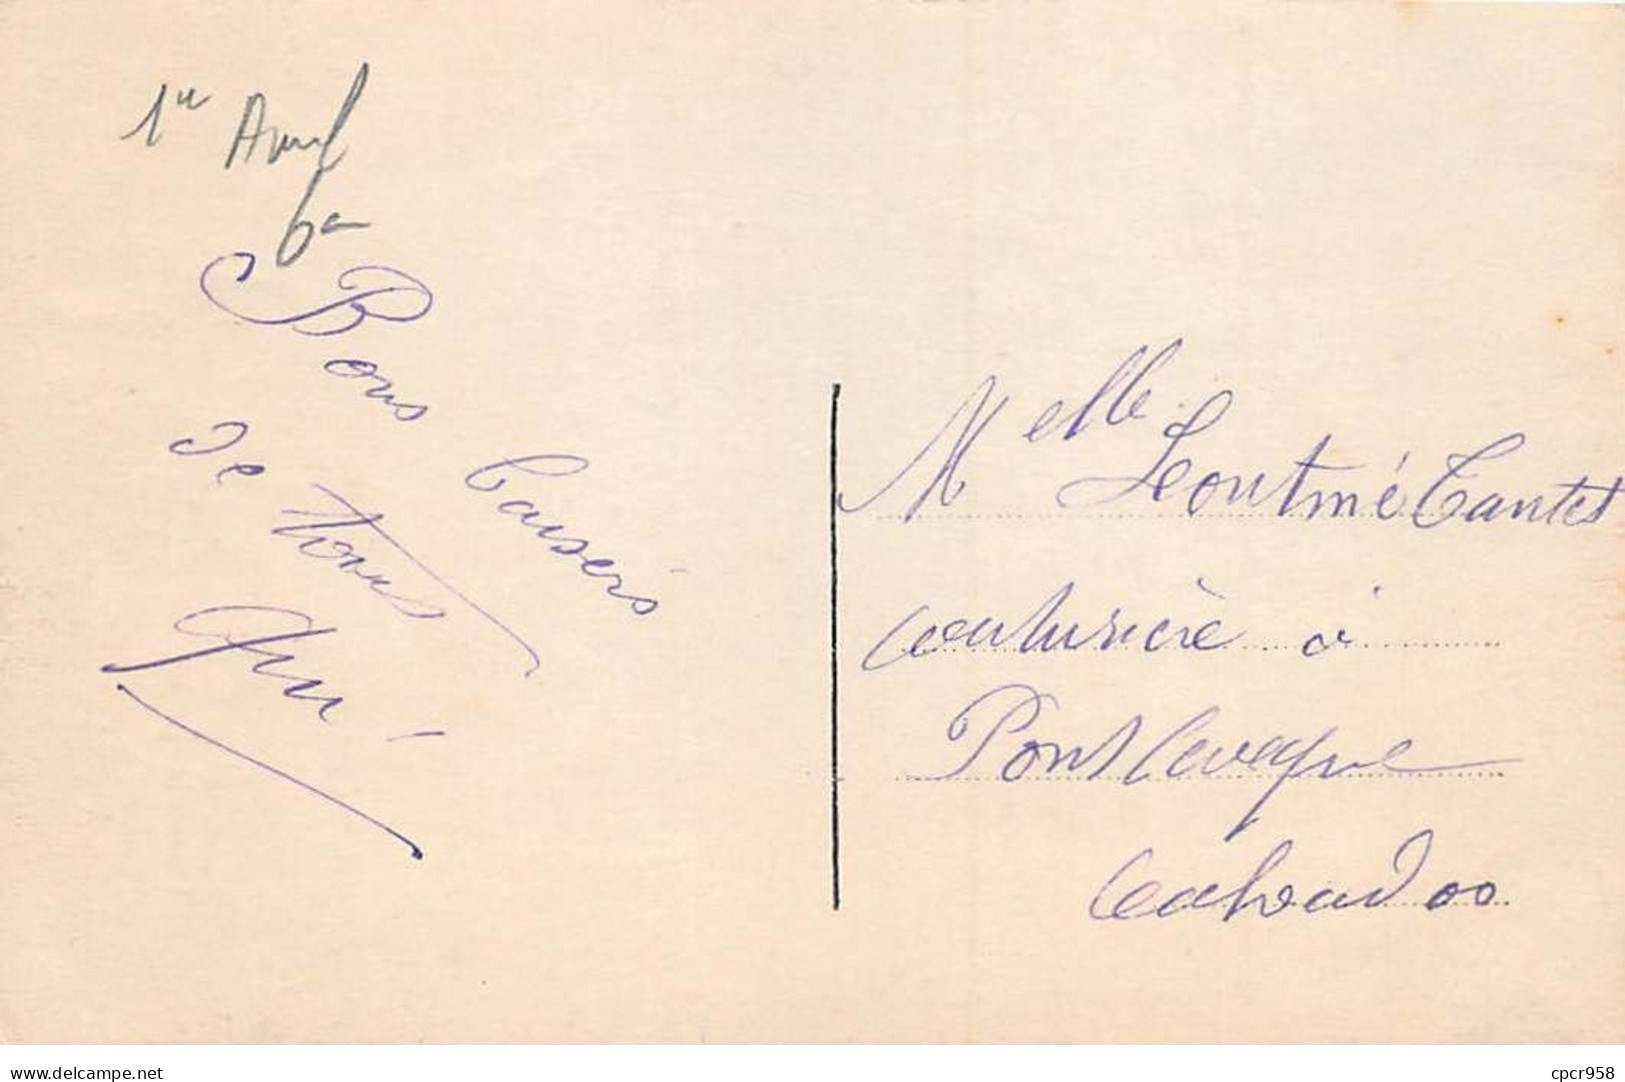 1er Avril
6-
Bons baisers
de tous
Melle Leontine Cantel
couturière à
Pont leveque
Calvados
www.delcampe.net
cpcr958